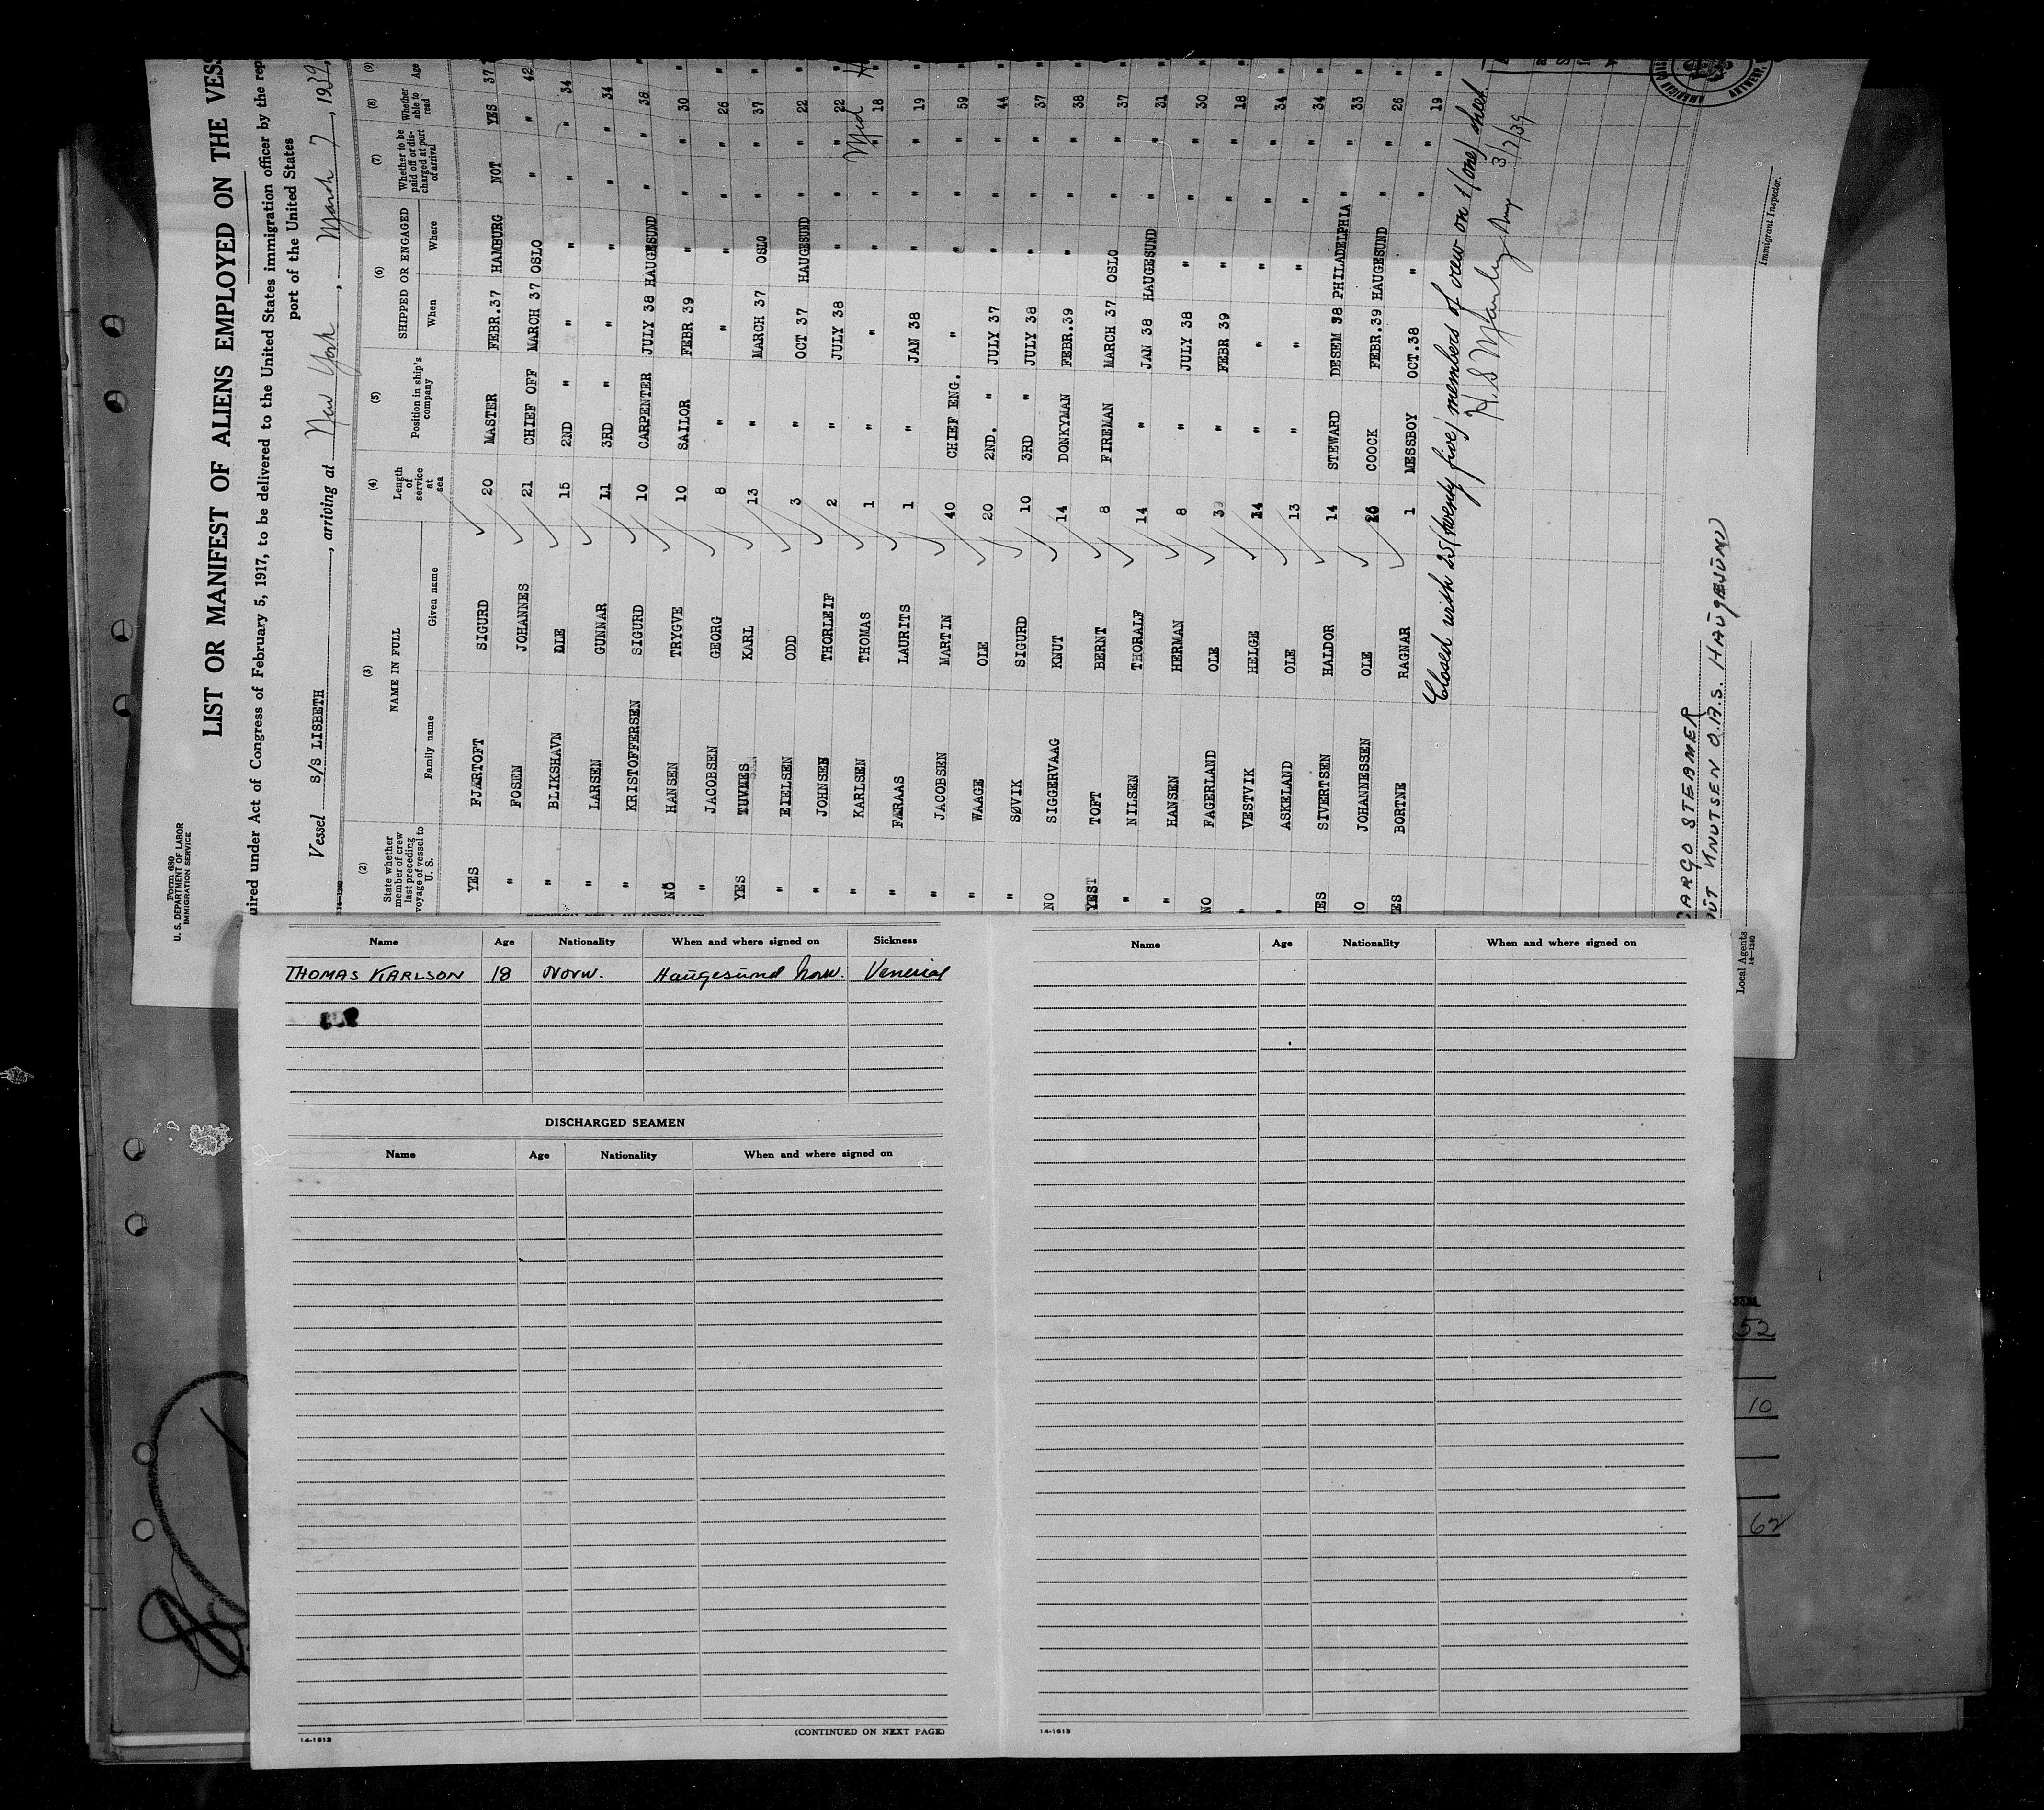 Form 680
U. S. DEPARTMENT OF LABOR
IMMIGRATION SERVICE
LIST OR MANIFEST OF ALIENS EMPLOYED ON THE VESS
uired under Act of Congress of February 5, 1917, to be delivered to the United States immigration officer by the rep
port of the United States
Vessel S/S LISBETH, arriving at New York, March 7, 1939,
(2) (3) (4) (5) (6) (7) (8) (9)
State whether member of crew last preceding voyage of vessel to U. S.
NAME IN FULL
Family name Given name
Length of service at sea
Position in ship's company
SHIPPED OR ENGAGED
When Where
Whether to be paid off or discharged at port of arrival
Whether able to read
Age
YES FJÆRTOFT SIGURD 20 MASTER FEBR.37 HAMBURG NOT YES 37
" FOSEN JOHANNES 21 CHIEF OFF MARCH 37 OSLO " " 42
" BLIKSHAVN OLE 15 2ND " " " " 34
" LARSEN GUNNAR 11 3RD " " " " 34
" KRISTOFFERSEN SIGURD 10 CARPENTER JULY 38 HAUGESUND " " 38
NO HANSEN TRYGVE 10 SAILOR FEBR 39 " " " 30
" JACOBSEN GEORG 8 " " " " " 26
YES TUVNES KARL 13 " MARCH 37 OSLO " " 37
" EIELSEN ODD 3 " OCT 37 HAUGESUND " " 22
" JOHNSEN THORLEIF 2 " JULY 38 " " " 22
" KARLSEN THOMAS 1 " " " " " 18
" FÆRAAS LAURITS 1 " JAN 38 " " " 19
" JACOBSEN MARTIN 40 CHIEF ENG. " " " " 59
" WAAGE OLE 20 2ND. " JULY 37 " " " 44
" SØVIK SIGURD 10 3RD JULY 38 " " " 37
NO SIGGERVAAG KNUT 14 DONKYMAN FEBR.39 " " " 38
YES TOFT BERNT 8 FIREMAN MARCH 37 OSLO " " 37
" NILSEN THORALF 14 " JAN 38 HAUGESUND " " 31
" HANSEN HERMAN 8 " JULY 38 " " " 30
NO FAGERLAND OLE 3 " FEBR 39 " " " 18
" VESTVIK HELGE 14 " " " " " 34
" ASKELAND OLE 13 " " " " " 34
YES SIVERTSEN HALDOR 14 STEWARD DESEM 38 PHILADELPHIA " " 33
NO JOHANNESSEN OLE COOCK FEBR.39 HAUGESUND " " 26
YES BORTNE RAGNAR 1 MESSBOY OCT.38 " " " 19
Closed with 25 (twenty five) members of crew on 1 (one) sheet
3/7/39
CARGO STEAMER
KNUT KNUTSEN O.A.S. HAUGESUND
Immigrant Inspector.
Local Agents
14—1240
Name Age Nationality When and where signed on Sickness
THOMAS KARLSON 18 Norw. Haugesund Norw. Venerial
DISCHARGED SEAMEN
Name Age Nationality When and where signed on
(CONTINUED ON NEXT PAGE)
14-1613
Name Age Nationality When and where signed on
14-1613
52
10
62